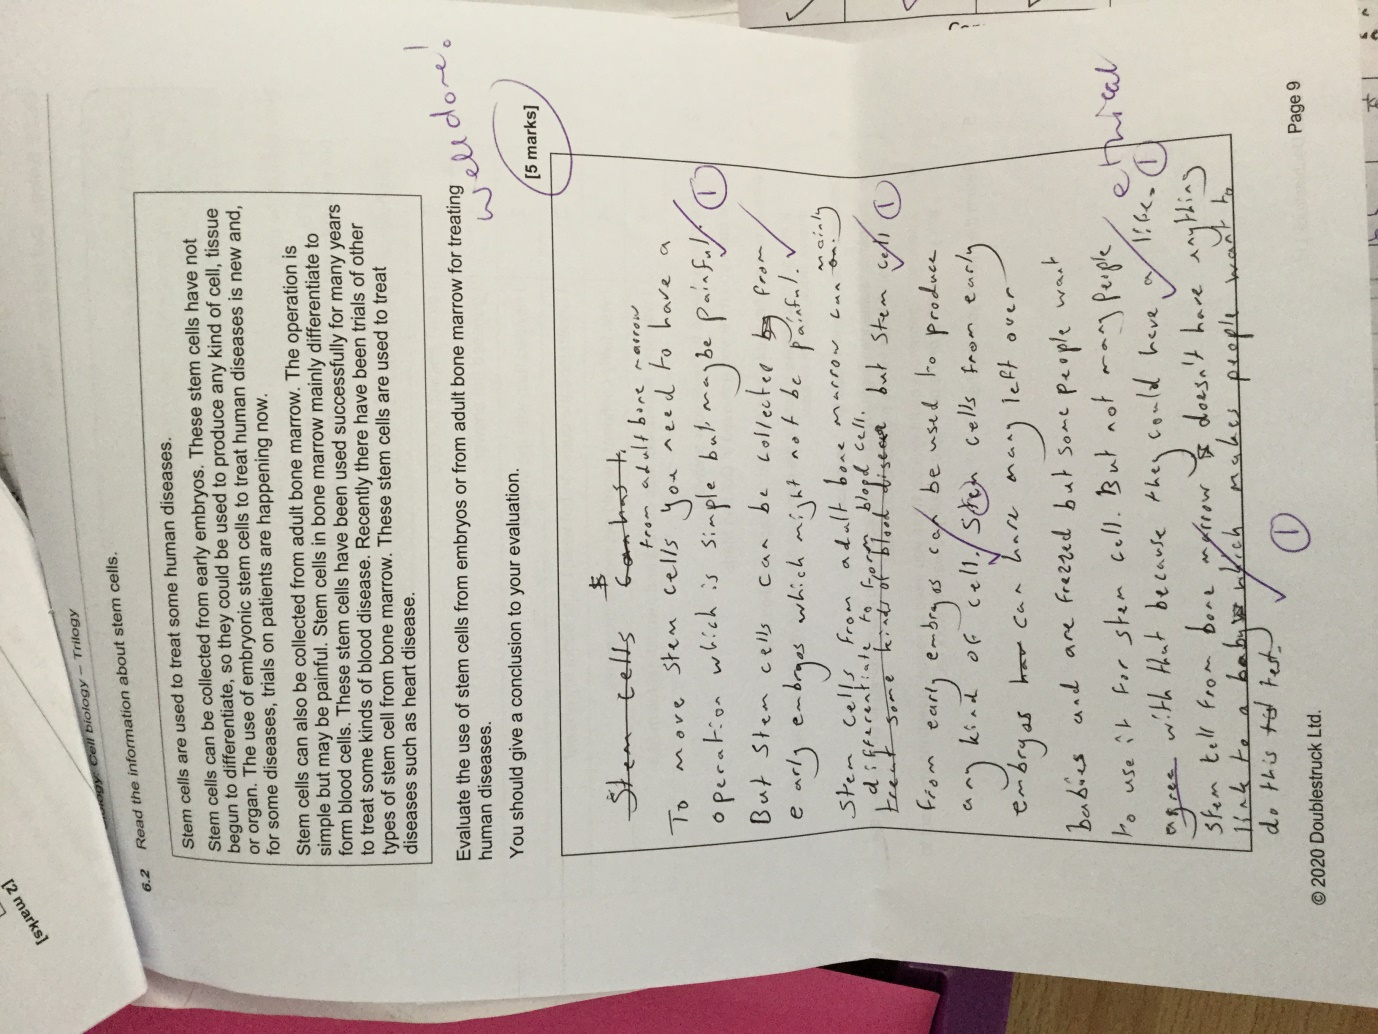 [2 marks]
Cell biology – Trilogy
6.2 Read the information about stem cells.
Stem cells are used to treat some human diseases.
Stem cells can be collected from early embryos. These stem cells have not
begun to differentiate, so they could be used to produce any kind of cell, tissue
or organ. The use of embryonic stem cells to treat human diseases is new and,
for some diseases, trials on patients are happening now.
Stem cells can also be collected from adult bone marrow. The operation is
simple but may be painful. Stem cells in bone marrow mainly differentiate to
form blood cells. These stem cells have been used successfully for many years
to treat some kinds of blood disease. Recently there have been trials of other
types of stem cell from bone marrow. These stem cells are used to treat
diseases such as heart disease.
Evaluate the use of stem cells from embryos or from adult bone marrow for treating
human diseases.
You should give a conclusion to your evaluation.
well done!
[5 marks]
Stem cells
from adult bone narrow
To move stem cells you need to have a
operation which is simple but maybe painful. 1
But stem cells can be collected from
early embryos which might not be painful.
Stem cells from adult bone marrow can mainly
differentiate to form blood cell.
treat some kinds of blood disease but stem cell 1
from early embryos can be used to produce
any kind of cell. Stem cells from early
embryos can have many left over
babies and are frezzed but some people want
to use it for stem cell. But not many people ethical
agree with that because they could have a life. 1
Stem tell from bone marrow doesn't have anything
link to a baby which makes people want to
do this test. 1
© 2020 Doublestruck Ltd.
Page 9